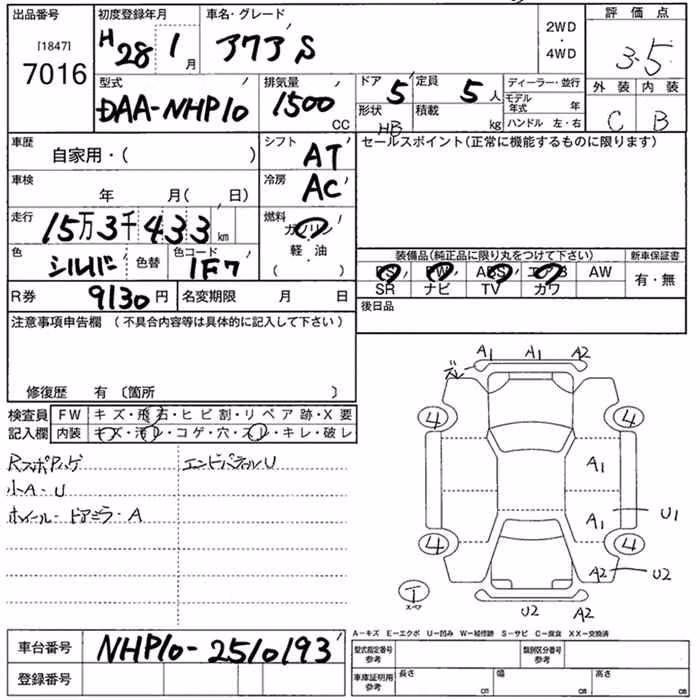 出品番号
［1847］
7016
初度登録年月
H28 1月
車名・グレード
アクア S
2WD
・
4WD
評価点
3.5
型式
DAA-NHP10
排気量
1500 CC
ドア 5
定員 5 人
形状 HB
積載 kg
ディーラー・並行
モデル年式 年
ハンドル 左・右
外装 内装
C B
車歴
自家用・( )
シフト
AT
セールスポイント(正常に機能するものに限ります)
車検
年 月( 日)
冷房
AC
走行
15万3千433km
燃料
ガソリン
軽・油
( )
色
シルバー 色替
色コード
1F7
装備品(純正品に限り丸をつけて下さい)
新車保証書
PS PW ABS エアB AW
SR ナビ TV カワ
有・無
R券 9130円
名変期限 月 日
後日品
注意事項申告欄 (不具合内容等は具体的に記入して下さい)
修復歴 有〔箇所 〕
検査員
記入欄
FW キズ・飛石・ヒビ割・リペア跡・X要
内装 キズ・汚レ・コゲ・穴・スレ・キレ・破レ
Rスポハゲ
小A・U
ホイール・ドアミラ・A
エンドパネルU
ズレ A1 A1 A2
4 4
A1
A1 U1
4 4
A2 U2
T
スペア
U2 A2
A－キズ E－エクボ U－凹み W－補修跡 S－サビ C－腐食 XX－交換済
車台番号 NHP10-2510193
登録番号
型式指定番号
参考
類別区分番号
参考
車庫証明用
参考
長さ cm
幅 cm
高さ cm